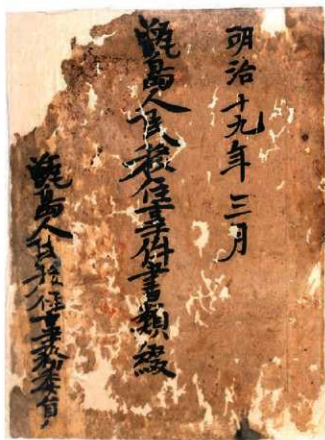 明治十九年三月
甑島人民移住事件書類綴
甑島人民移住事務委員